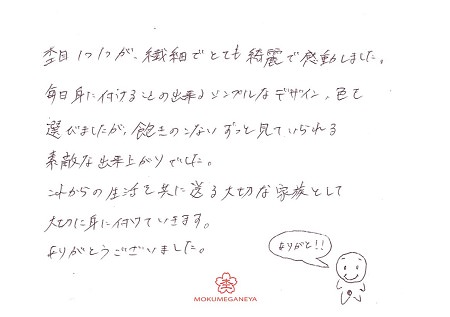 杢目1つ1つが、繊細でとても綺麗で感動しました。
毎日身に付けることの出来るシンプルなデザイン、色で
選びましたが、飽きのこないずっと見ていられる
素敵な出来上がりでした。
これからの生活を共に送る大切な家族として
大切に身に付けていきます。
ありがとうございました。
ありがと!!
杢
MOKUMEGANEYA